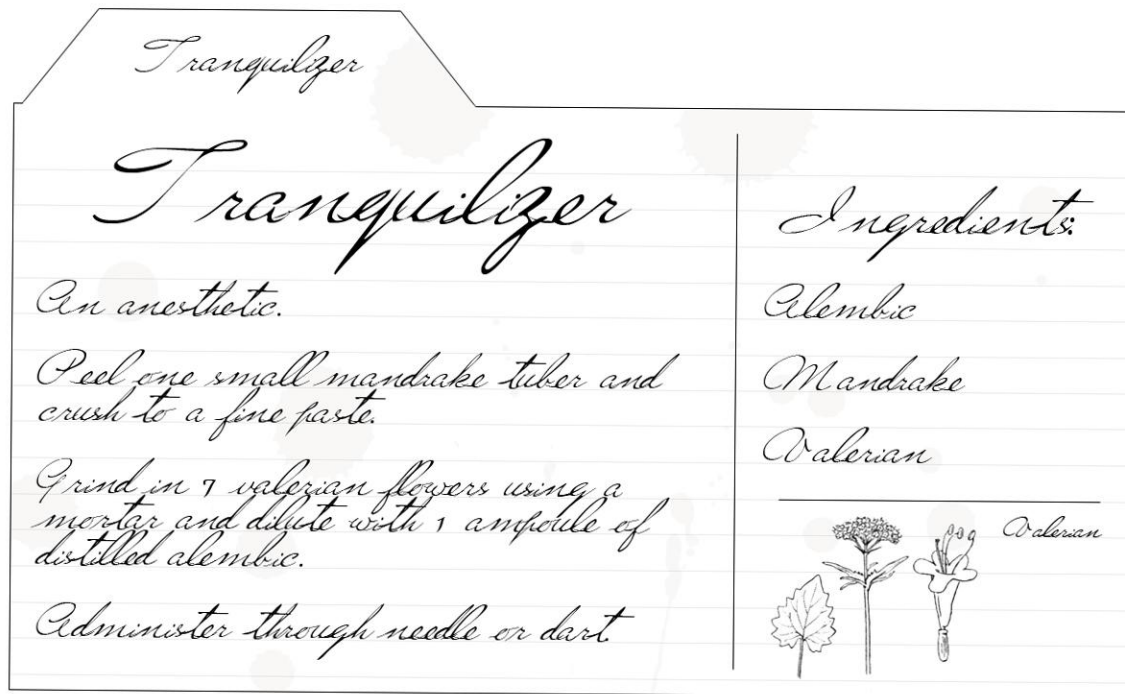 Tranquilizer
Tranquilizer
An anesthetic.
Peel one small mandrake tuber and
crush to a fine paste.
Grind in 7 valerian flowers using a
mortar and dilute with 1 ampoule of
distilled alembic.
Administer through needle or dart
Ingredients:
Alembic
Mandrake
Valerian
Valerian